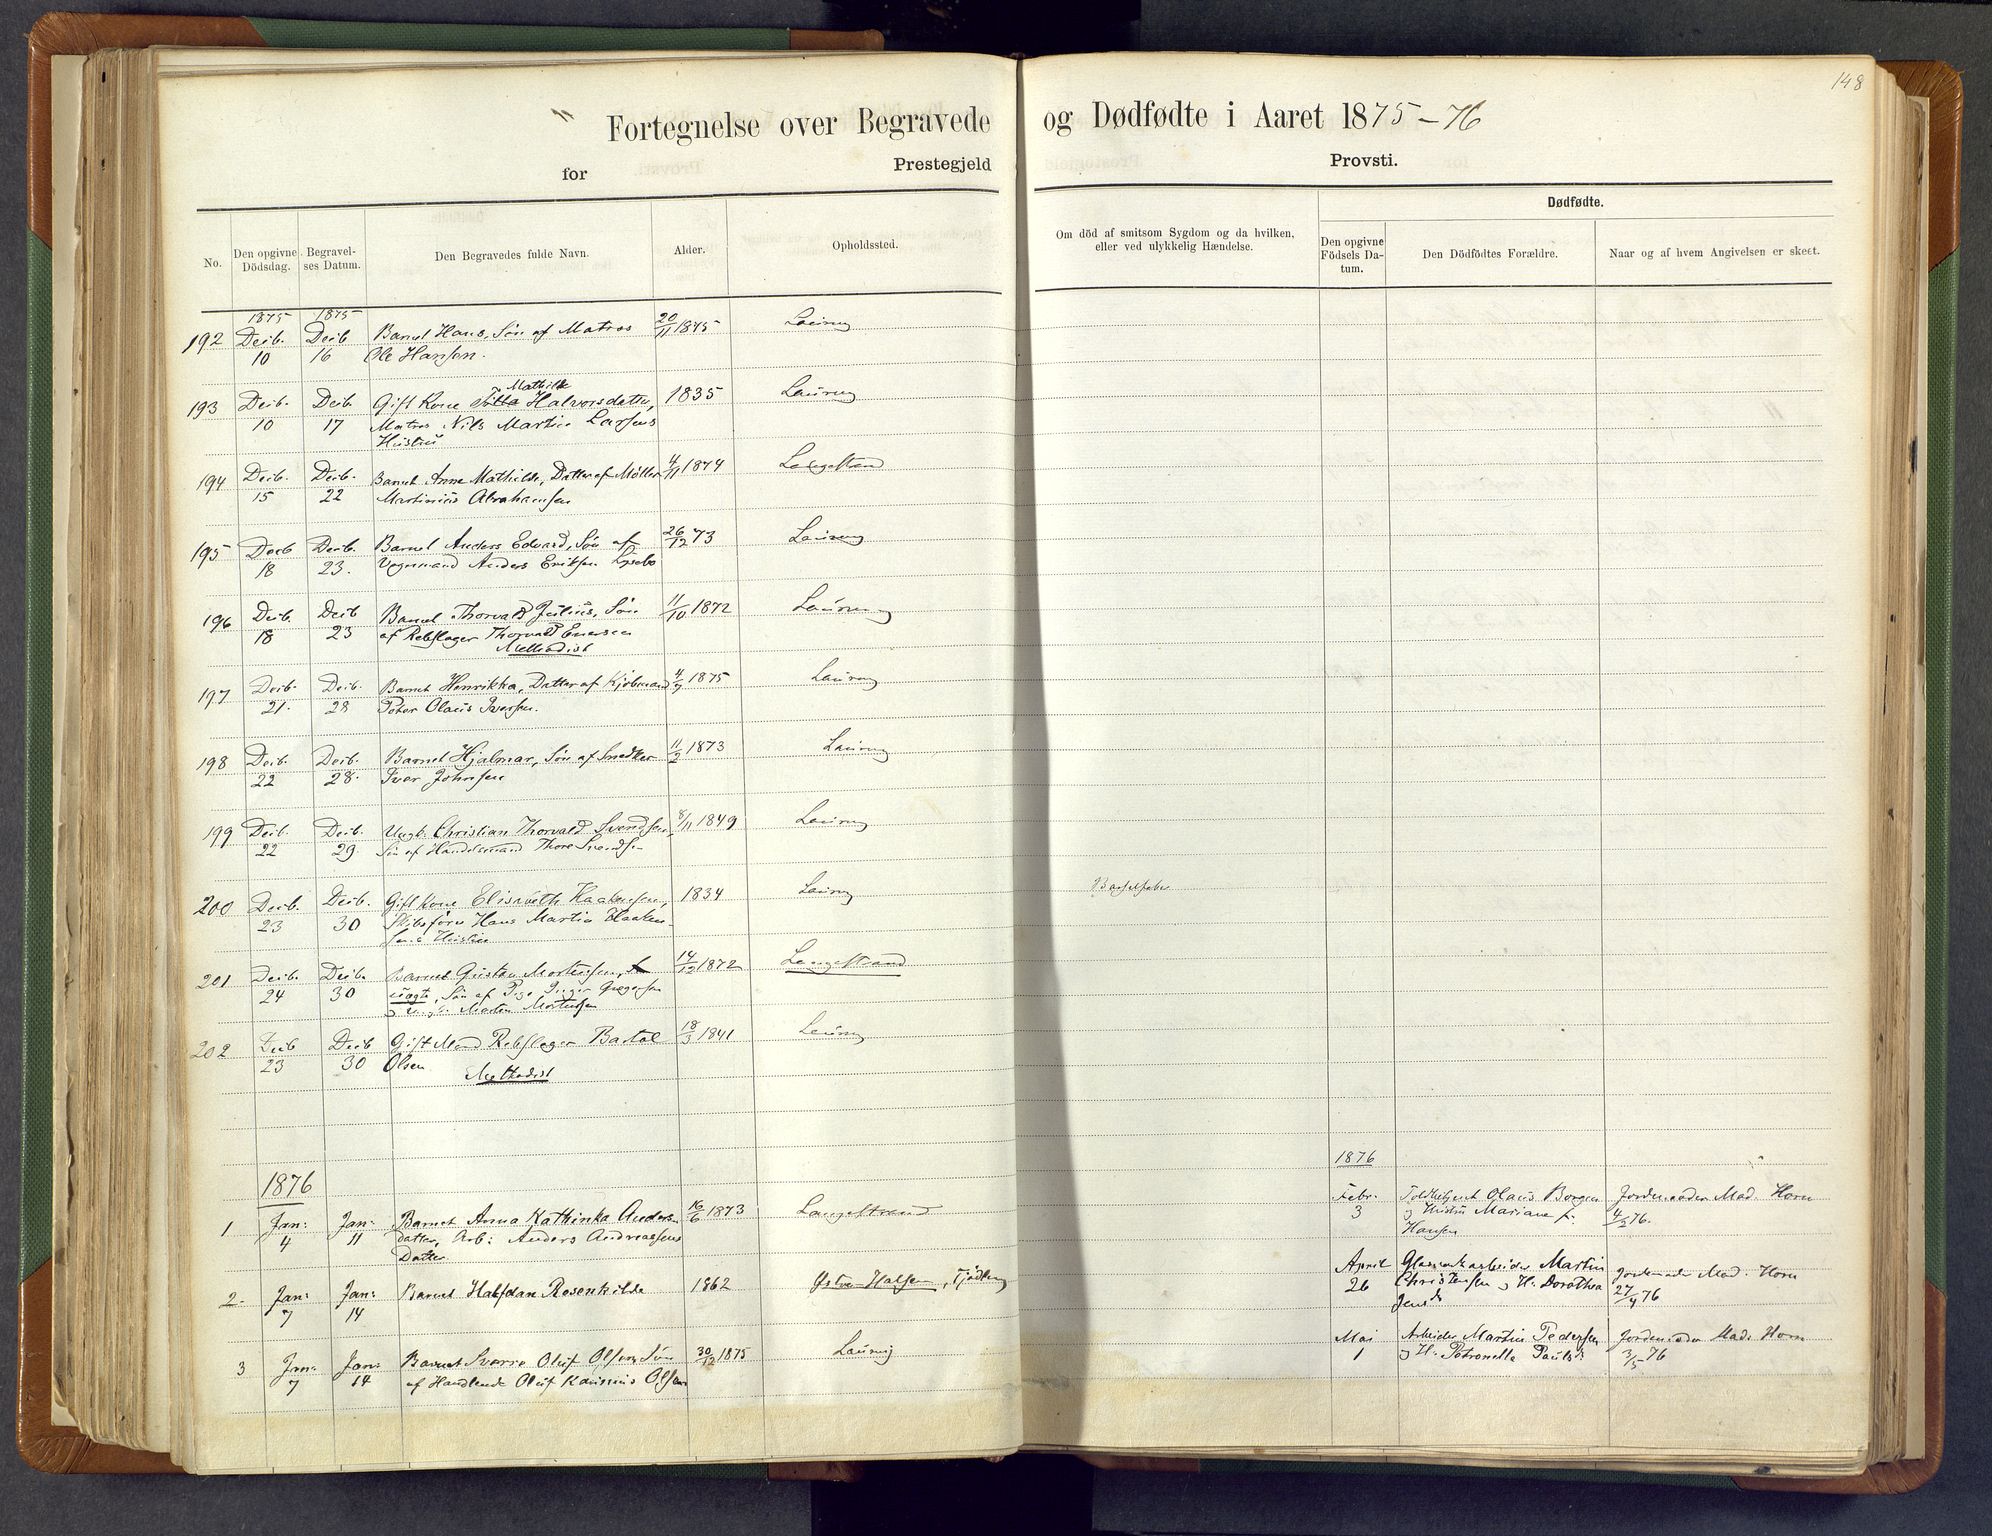 148
Fortegnelse over Begravede og Dødfødte i Aaret 1875-76
for Prestegjeld Provsti.
No.
Den opgivne Dödsdag.
Begravelses Datum.
Den Begravedes fulde Navn.
Alder.
Opholdssted.
Om död af smitsom Sygdom og da hvilken, eller ved ulykkelig Hændelse.
Dødfødte.
Den opgivne Födsels Datum.
Den Dödfödtes Forældre.
Naar og af hvem Angivelsen er skeet.
1875 1875
192 Decb. Decb Barnet Hans, Søn af Matros 20/11 1875 Laurvig
10 16 Ole Hansen.
Mathilde
193 Decb. Decb Gift Kone Halvorsdatter, 1835 Laurvig
10 17 Matros Nils Martin Larsens
Hustru
194 Decb. Decb. Barnet Anne Mathilde, Datter af Møller 4/11 1874 Langestrand
15 22 Martinius Abrahamsen
195 Decb Decb. Barnet Anders Edvard, Søn af 26/12 73 Laurvig
18 23. Vognmand Anders Eriksen
196 Decb. Decb Barnet Thorvald Julius, Søn 11/10 1872 Laurvig
18 23 af Rebslager Thorvald
Methodist
197 Decb. Decb. Barnet Henrikka, Datter af Kjøbmand 4/7 1875 Laurvig
21. 28 Peter Olaus Iversen.
198 Decb. Decb. Barnet Hjalmar, Søn af Snedker 11/2 1873 Laurvig
22 28. Iver Johnsen
199 Decb. Decb. Ungk. Christian Thorvald Svendsen, 8/11 1849 Laurvig
22 29. Søn af Handelsmand Thore Svendsen
200 Decb. Decb. Gift Kone Elisabeth Haakensen, 1834 Laurvig Barselfeber
23 30 Skibsfører Hans Martin Haaken-
sens Hustru
201 Decb. Decb. Barnet Gustav Mortensen, 14/12 1872 Langestrand
24 30 uægte, Søn af Pige Inger Gregersen
og Morten Mortensen
202 Decb Decb Gift Mand Rebslager Bartol 18/3 1841 Laurvig
23 30 Olsen
Methodist
1876
1 Jan: Jan: Barnet Anna Kathinka Anders- 16/6 1873 Langestrand
4 11 datter, Arb: Anders Andreassens
Datter
2 Jan: Jan: Barnet Halfdan Rosenkilde 1862 Østre Halsen, Tjødling
7 14
3 Jan: Jan: Barnet Sverre Oluf Olsen, Søn 30/12 1875 Laurvig
7 14 af Handlende Oluf Olsen
1876
Febr. Toldbetjent Olaus Borgen Jordemoder Mad. Horn
3 og Hustru Mariane f. 4/2 76.
Hansen
April Glasverksarbeider Martin Jordemoder Mad. Horn
26 Christensen og H. Dorothea 27/4 76
Jensd
Mai Arbeider Martin Pedersen Jordemoder Mad. Horn
1 og H. Petronelle Paulsd 3/5 76